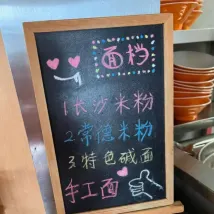 面档
1长沙米粉
2.常德米粉
3.特色碱面
手工面